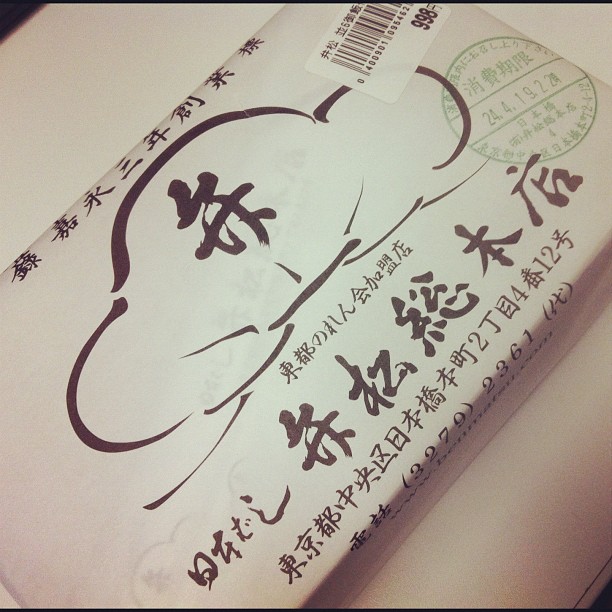 弁松 並6御飯
0 400901 095452
998円
消費期限
24.4.19.2.24
日本橋
㈱弁松総本店
嘉永三年創業
弁
東都のれん会加盟店
日本ばし 弁松総本店
東京都中央区日本橋本町2丁目4番12号
電話 (3279) 2361 (代)
www.benmatsu.com